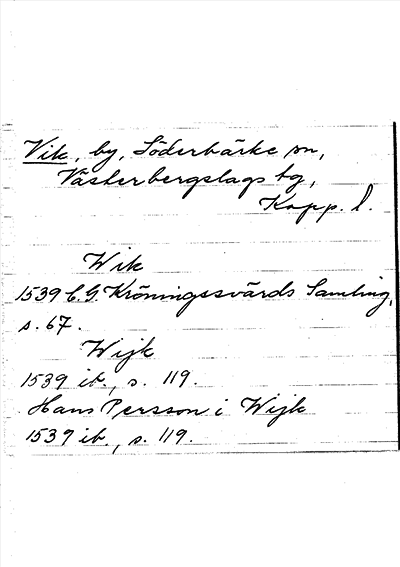 Vik, by, Söderbärke sn,
Västerbergslags tg,
Kopp. l.
Wik
1539 C. G. Kröningssvärds Samling,
s. 67.
Wijk
1539 ib., s. 119.
Hans Persson i Wijk
1539 ib., s. 119.